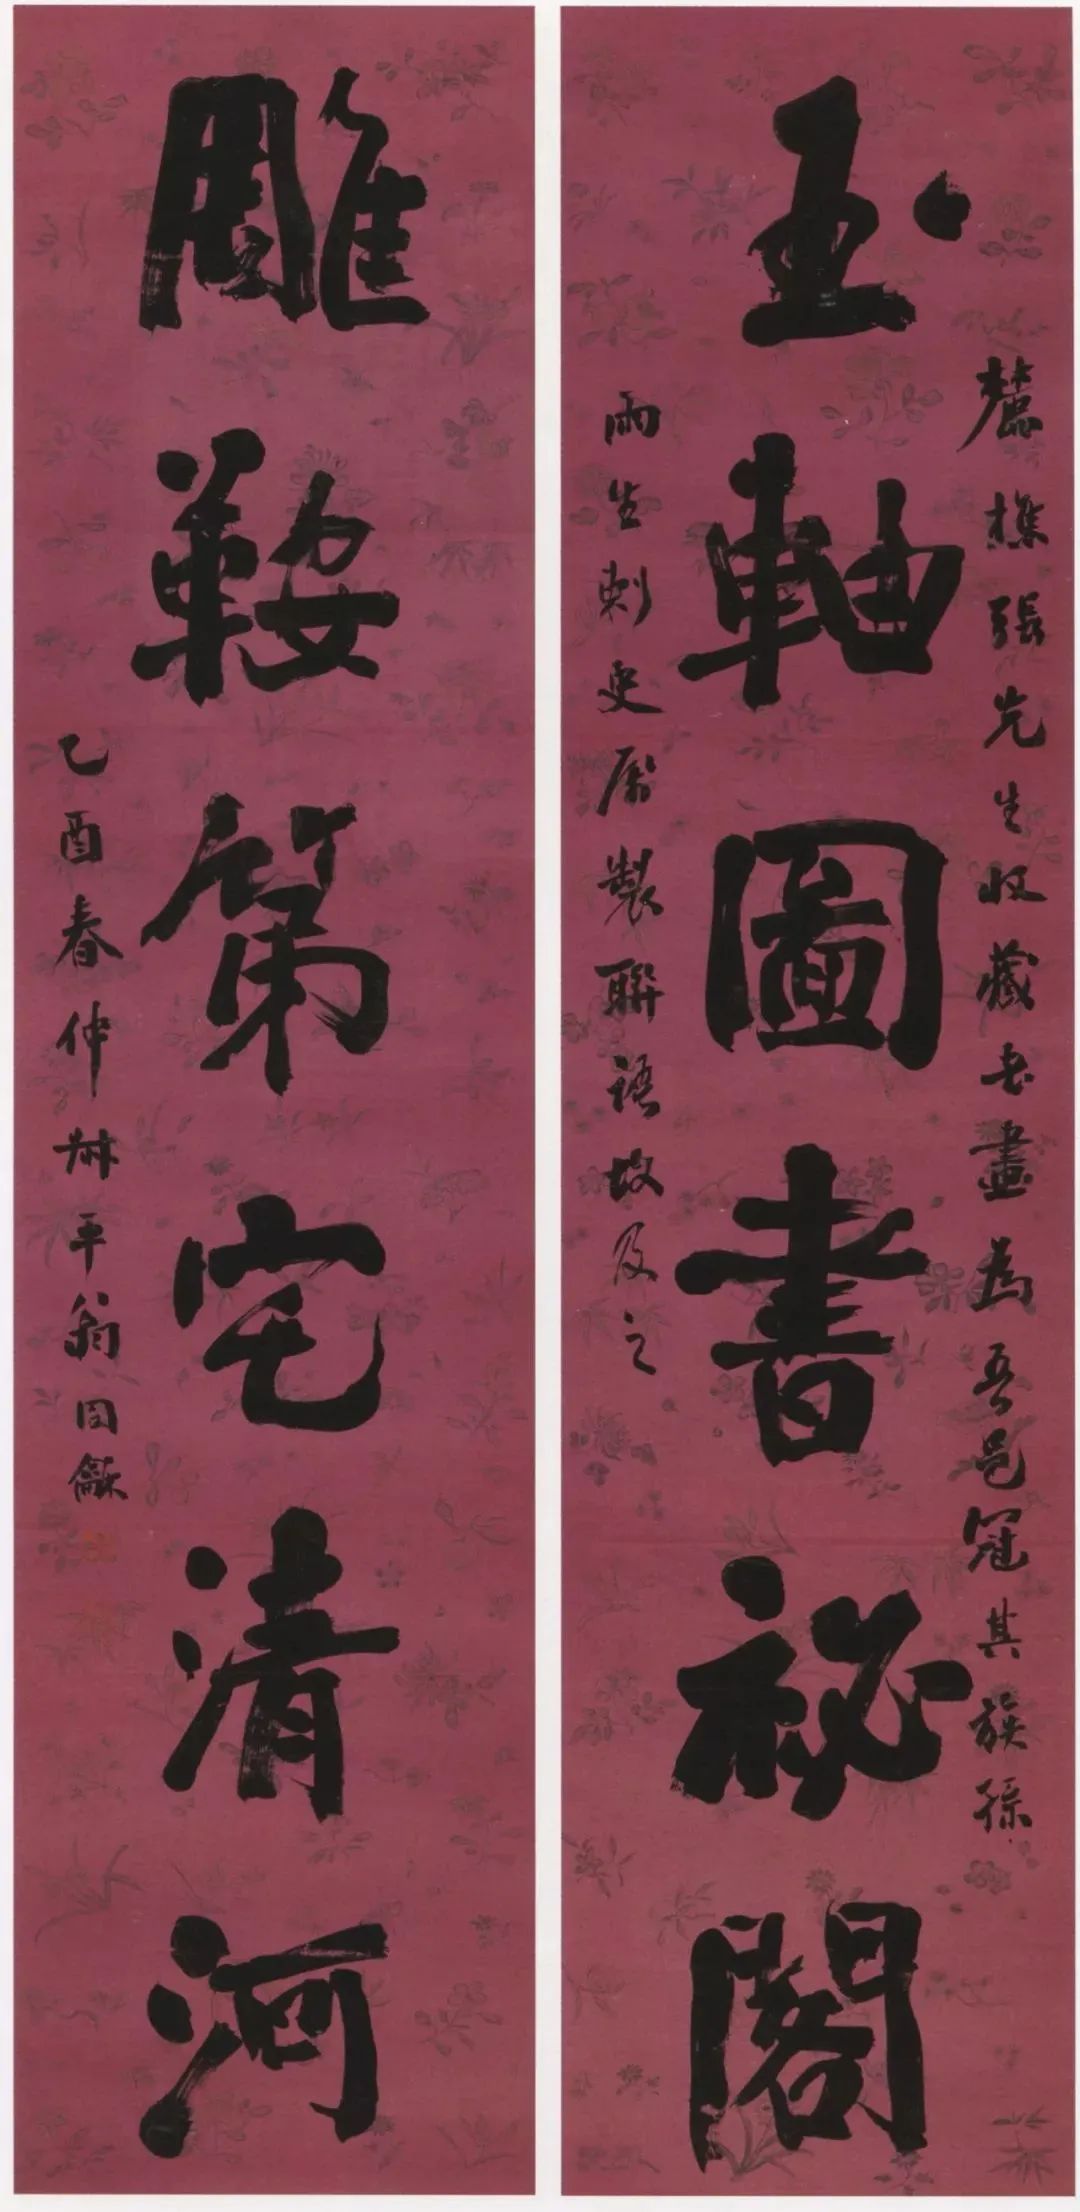 玉軸圖書祕閣
麓樵張先生收藏書畫為吾邑冠其族孫
雨生刺史屬製聯語故及之
雕鞍第宅清河
乙酉春仲
平翁同龢